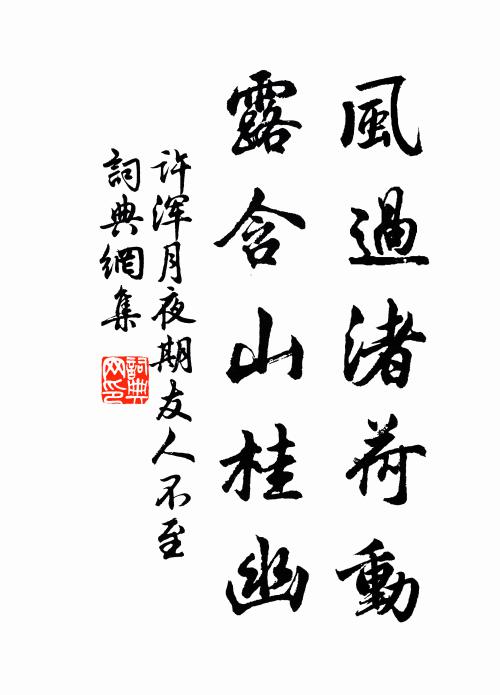 風過渚荷動
露含山桂幽
許渾月夜期友人不至
詞典網集
詞典
网印